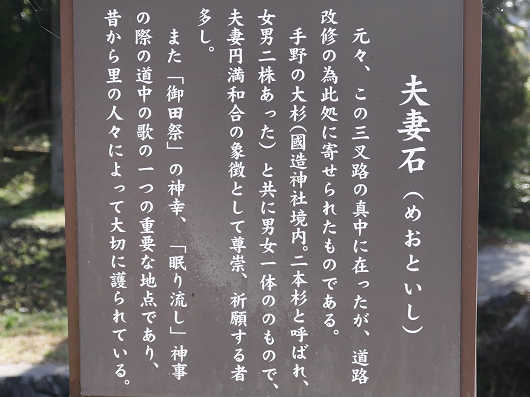 夫妻石(めおといし)
元々、この三叉路の真中に在ったが、道路
改修の為此処に寄せられたものである。
手野の大杉(國造神社境内。二本杉と呼ばれ、
女男二株あった)と共に男女一体ののもので、
夫妻円満和合の象徴として尊崇、祈願する者
多し。
また「御田祭」の神幸、「眠り流し」神事
の際の道中の歌の一つの重要な地点であり、
昔から里の人々によって大切に護られている。